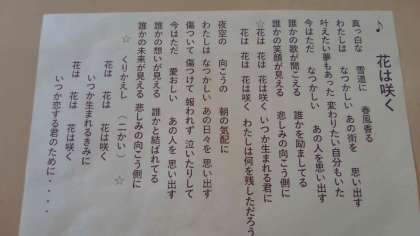 ♪ 花は咲く
真っ白な 雪道に 春風香る
わたしは なつかしい あの街を 思い出す
叶えたい夢もあった 変わりたい自分もいた
今はただ なつかしい あの人を 思い出す
誰かの歌が聞こえる 誰かを励ましてる
誰かの笑顔が見える 悲しみの向こう側に
☆花は 花は 花は咲く いつか生まれる君に
花は 花は 花は咲く わたしは何を残しただろう
夜空の 向こうの 朝の気配に
わたしは なつかしい あの日々を 思い出す
傷ついて 傷つけて 報われず 泣いたりして
今はただ 愛おしい あの人を 思い出す
誰かの想いが見える 誰かと結ばれてる
誰かの未来が見える 悲しみの向こう側に
☆ くりかえし (二かい) ☆
花は 花は 花は咲く
いつか生まれるきみに
花は 花は 花は咲く
いつか恋する君のために・・・・